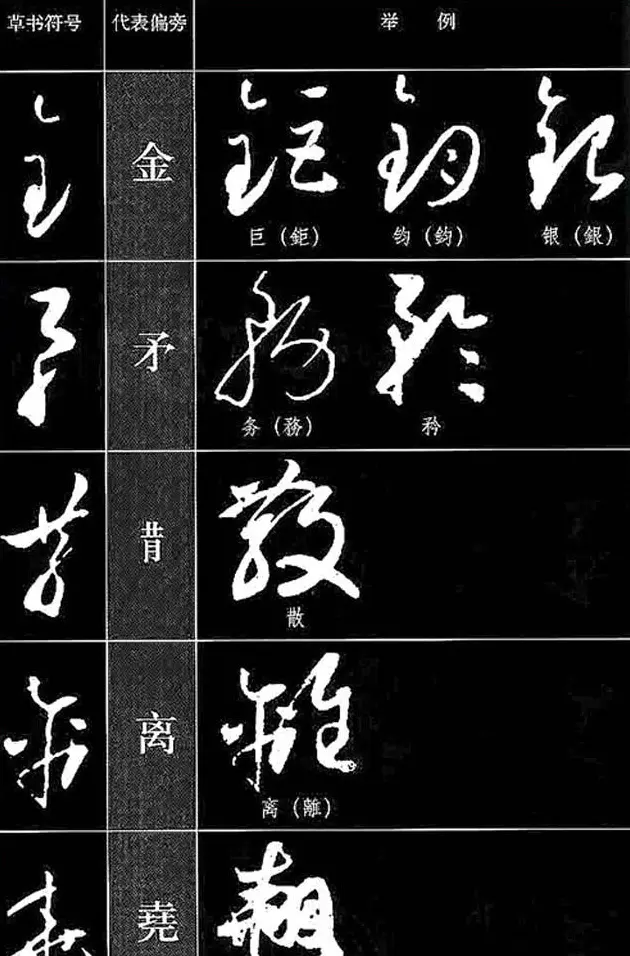 草书符号 代表偏旁 举例
金
巨（鉅） 钧（鈞） 银（銀）
矛
务（務） 矜
散
离
离（離）
堯